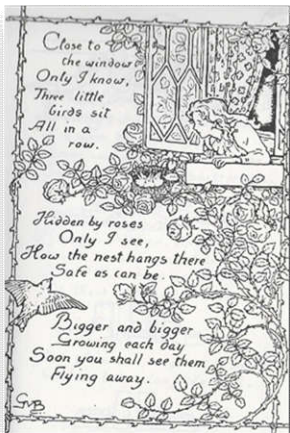 Close to
the window
Only I know,
Three little
birds sit
All in a
row.
Hidden by roses
Only I see,
How the nest hangs there
Safe as can be.
Bigger and bigger
Growing each day
Soon you shall see them
Flying away.
GMB